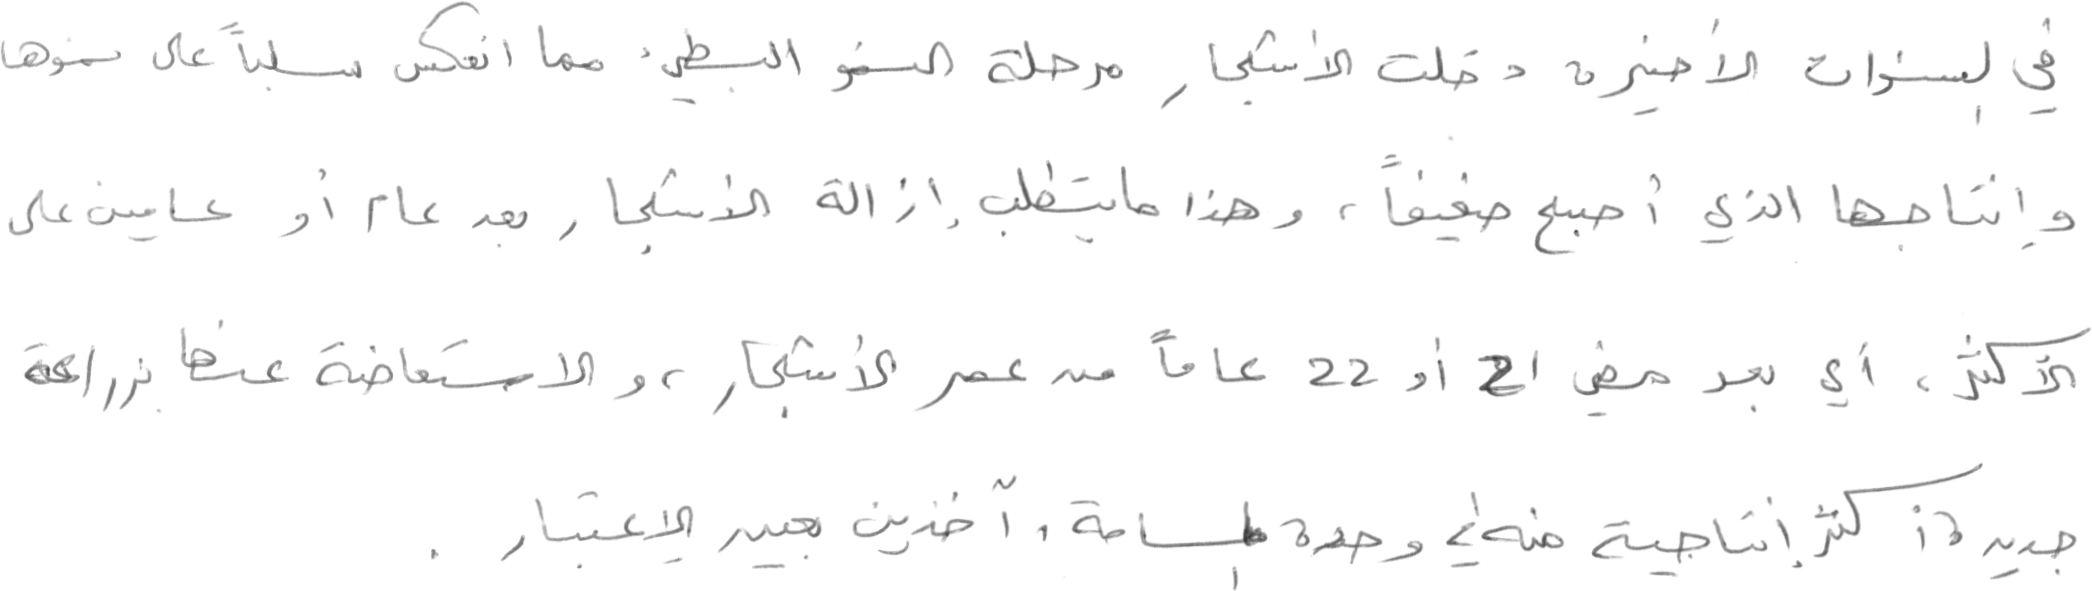 في السنوات الأخيرة دخلت الأشجار مرحلة النمو البطيء مما انعكس سلباً على نموها
وإنتاجها الذي أصبح ضعيفاً، وهذا ما يتطلب إزالة الأشجار بعد عام أو عامين على
الأكثر، أي بعد مضي 21 أو 22 عاماً من عمر الأشجار، والاستعاضة عنها بزراعة
جديدة أكثر إنتاجية منه في وحدة المساحة، آخذين بعين الإعتبار .